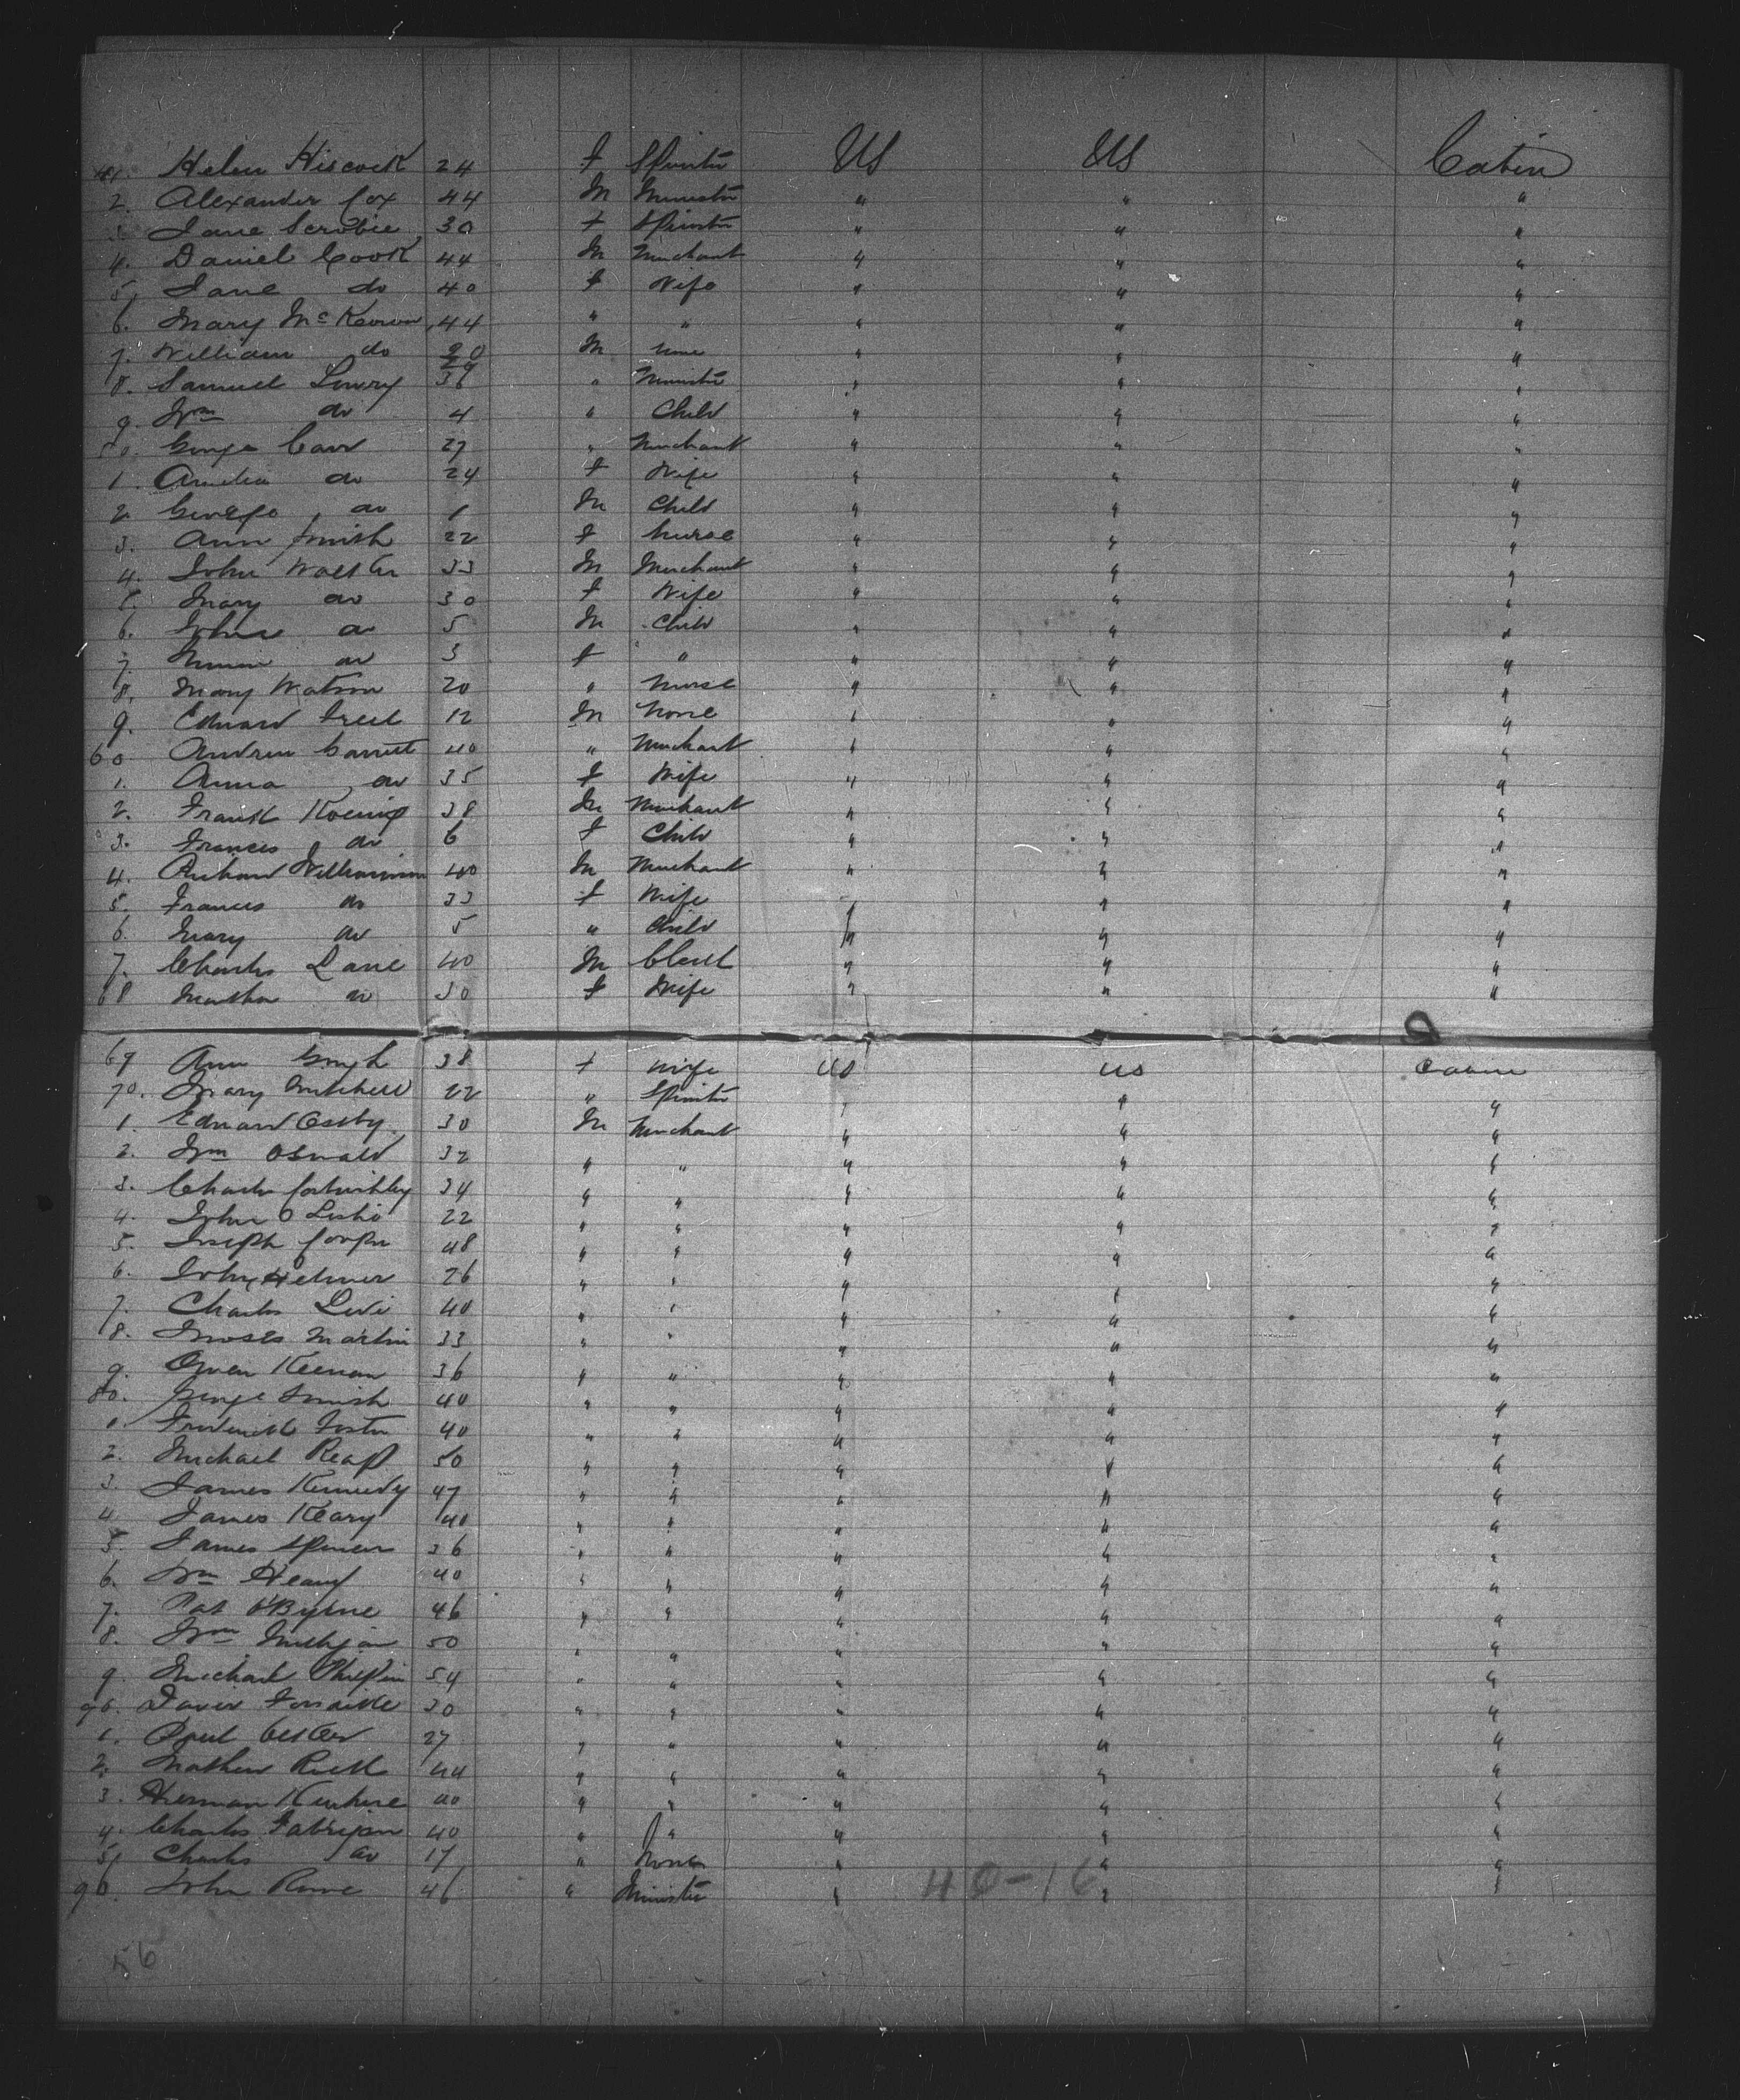 41. Helen Hiscock 24 f Spinster US US Cabin
2. Alexander Cox 44 M Minister " " "
3. Jane Scrobie 30 f Spinster " " "
4. Daniel Cook 44 M Merchant " " "
5. Jane do 40 f Wife " " "
6. Mary McKeown 44 " " " " "
7. William do 20 M None " " "
8. Samuel Lowry 36 " Minister " " "
9. Wm do 4 " Child " " "
50. George Carr 27 " Merchant " " "
1. Amelia do 24 f Wife " " "
2. George do 1 M Child " " "
3. Ann Smith 22 f Nurse " " "
4. John Walter 33 M Merchant " " "
5. Mary do 30 f Wife " " "
6. John do 5 M Child " " "
7. do 3 f " " " "
8. Mary Watson 20 " Nurse " " "
9. Edward 12 M None " " "
60 Andrew 40 " Merchant " " "
1. Anna do 35 f Wife " " "
2. Frank Koenig 38 M Merchant " " "
3. Frances do 6 f Child " " "
4. Richard Williamson 40 M Merchant " " "
5. Frances do 33 f Wife " " "
6. Mary do 5 " Child " " "
7. Charles Lane 40 M Clerk " " "
68 Martha do 30 f Wife " " "
69 Ann Gough 38 f Wife US US Cabin
70. Mary Mitchell 22 " Spinster " " "
1. Edward 30 M Merchant " " "
2. Wm Oswald 32 " " " " "
3. Charles 34 " " " " "
4. John O Leslie 22 " " " " "
5. Joseph Cooper 48 " " " " "
6. John Helmer 26 " " " " "
7. Charles Levi 40 " " " " "
8. Moses Martin 33 " " " " "
9. Owen Keenan 36 " " " " "
80. George Smith 40 " " " " "
1. Frederick Foster 40 " " " " "
2. Michael Reap 50 " " " " "
3. James Kennedy 47 " " " " "
4. James Keary 40 " " " " "
5. James Spencer 36 " " " " "
6. Wm 40 " " " " "
7. Pat O'Byrne 46 " " " " "
8. Wm 50 " " " " "
9. Michael 54 " " " " "
90. David 30 " " " " "
1. Paul 27 " " " " "
2. Mathew 44 " " " " "
3. Herman 40 " " " " "
4. Charles Fabrigan 40 " " " " "
5. Charles do 17 " None " " "
96. John Rowe 46 " Minister " " "
40-16
56